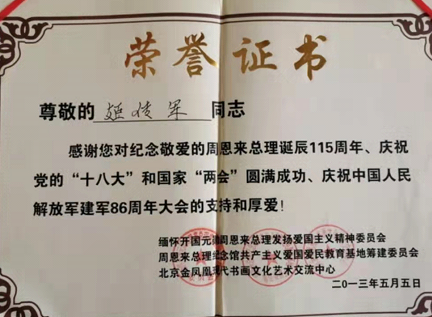 荣誉证书
尊敬的 姬传军 同志
感谢您对纪念敬爱的周恩来总理诞辰115周年、庆祝
党的“十八大”和国家“两会”圆满成功、庆祝中国人民
解放军建军86周年大会的支持和厚爱！
缅怀开国元勋周恩来总理发扬爱国主义精神委员会
周恩来总理纪念馆共产主义爱国爱民教育基地筹建委员会
北京金凤凰现代书画文化艺术交流中心
二0一三年五月五日